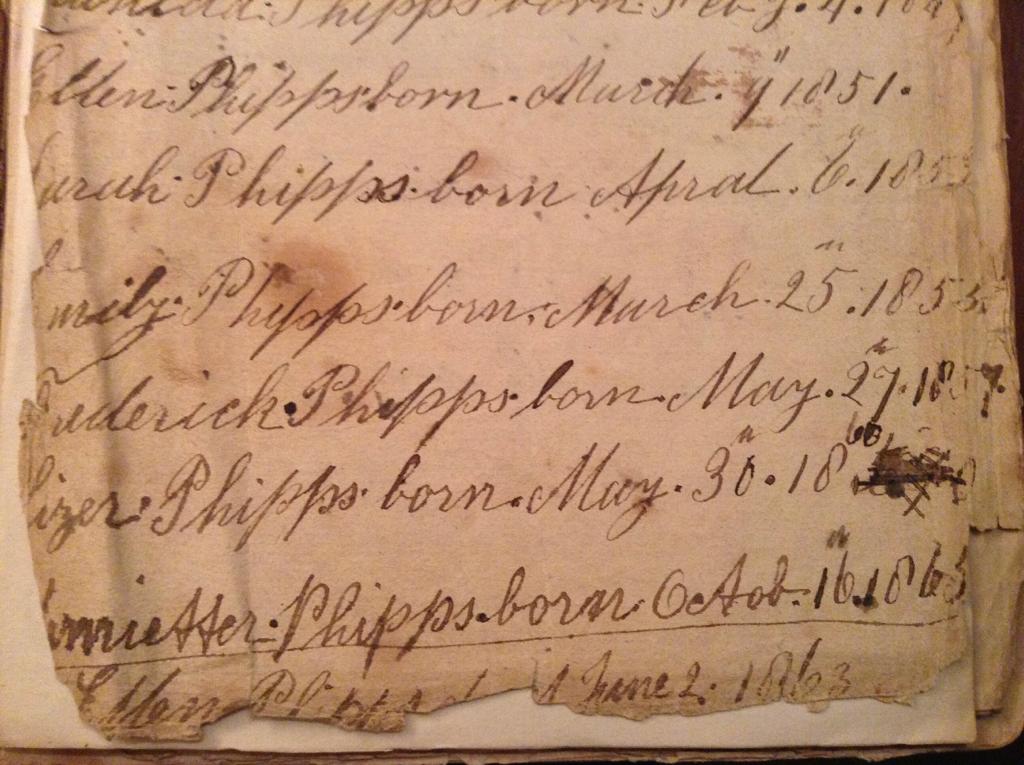 Phipps born Feb
Ellen Phipps born March 9 1851.
Sarah Phipps born Apral 6. 185
Emily Phypps born March 25. 1855
Frederick Phipps born May. 27. 1857.
lizer Phipps born May. 30. 18 60
nrietter Phipps born Octob. 16. 1863
Ellen Phipps June 2. 1863